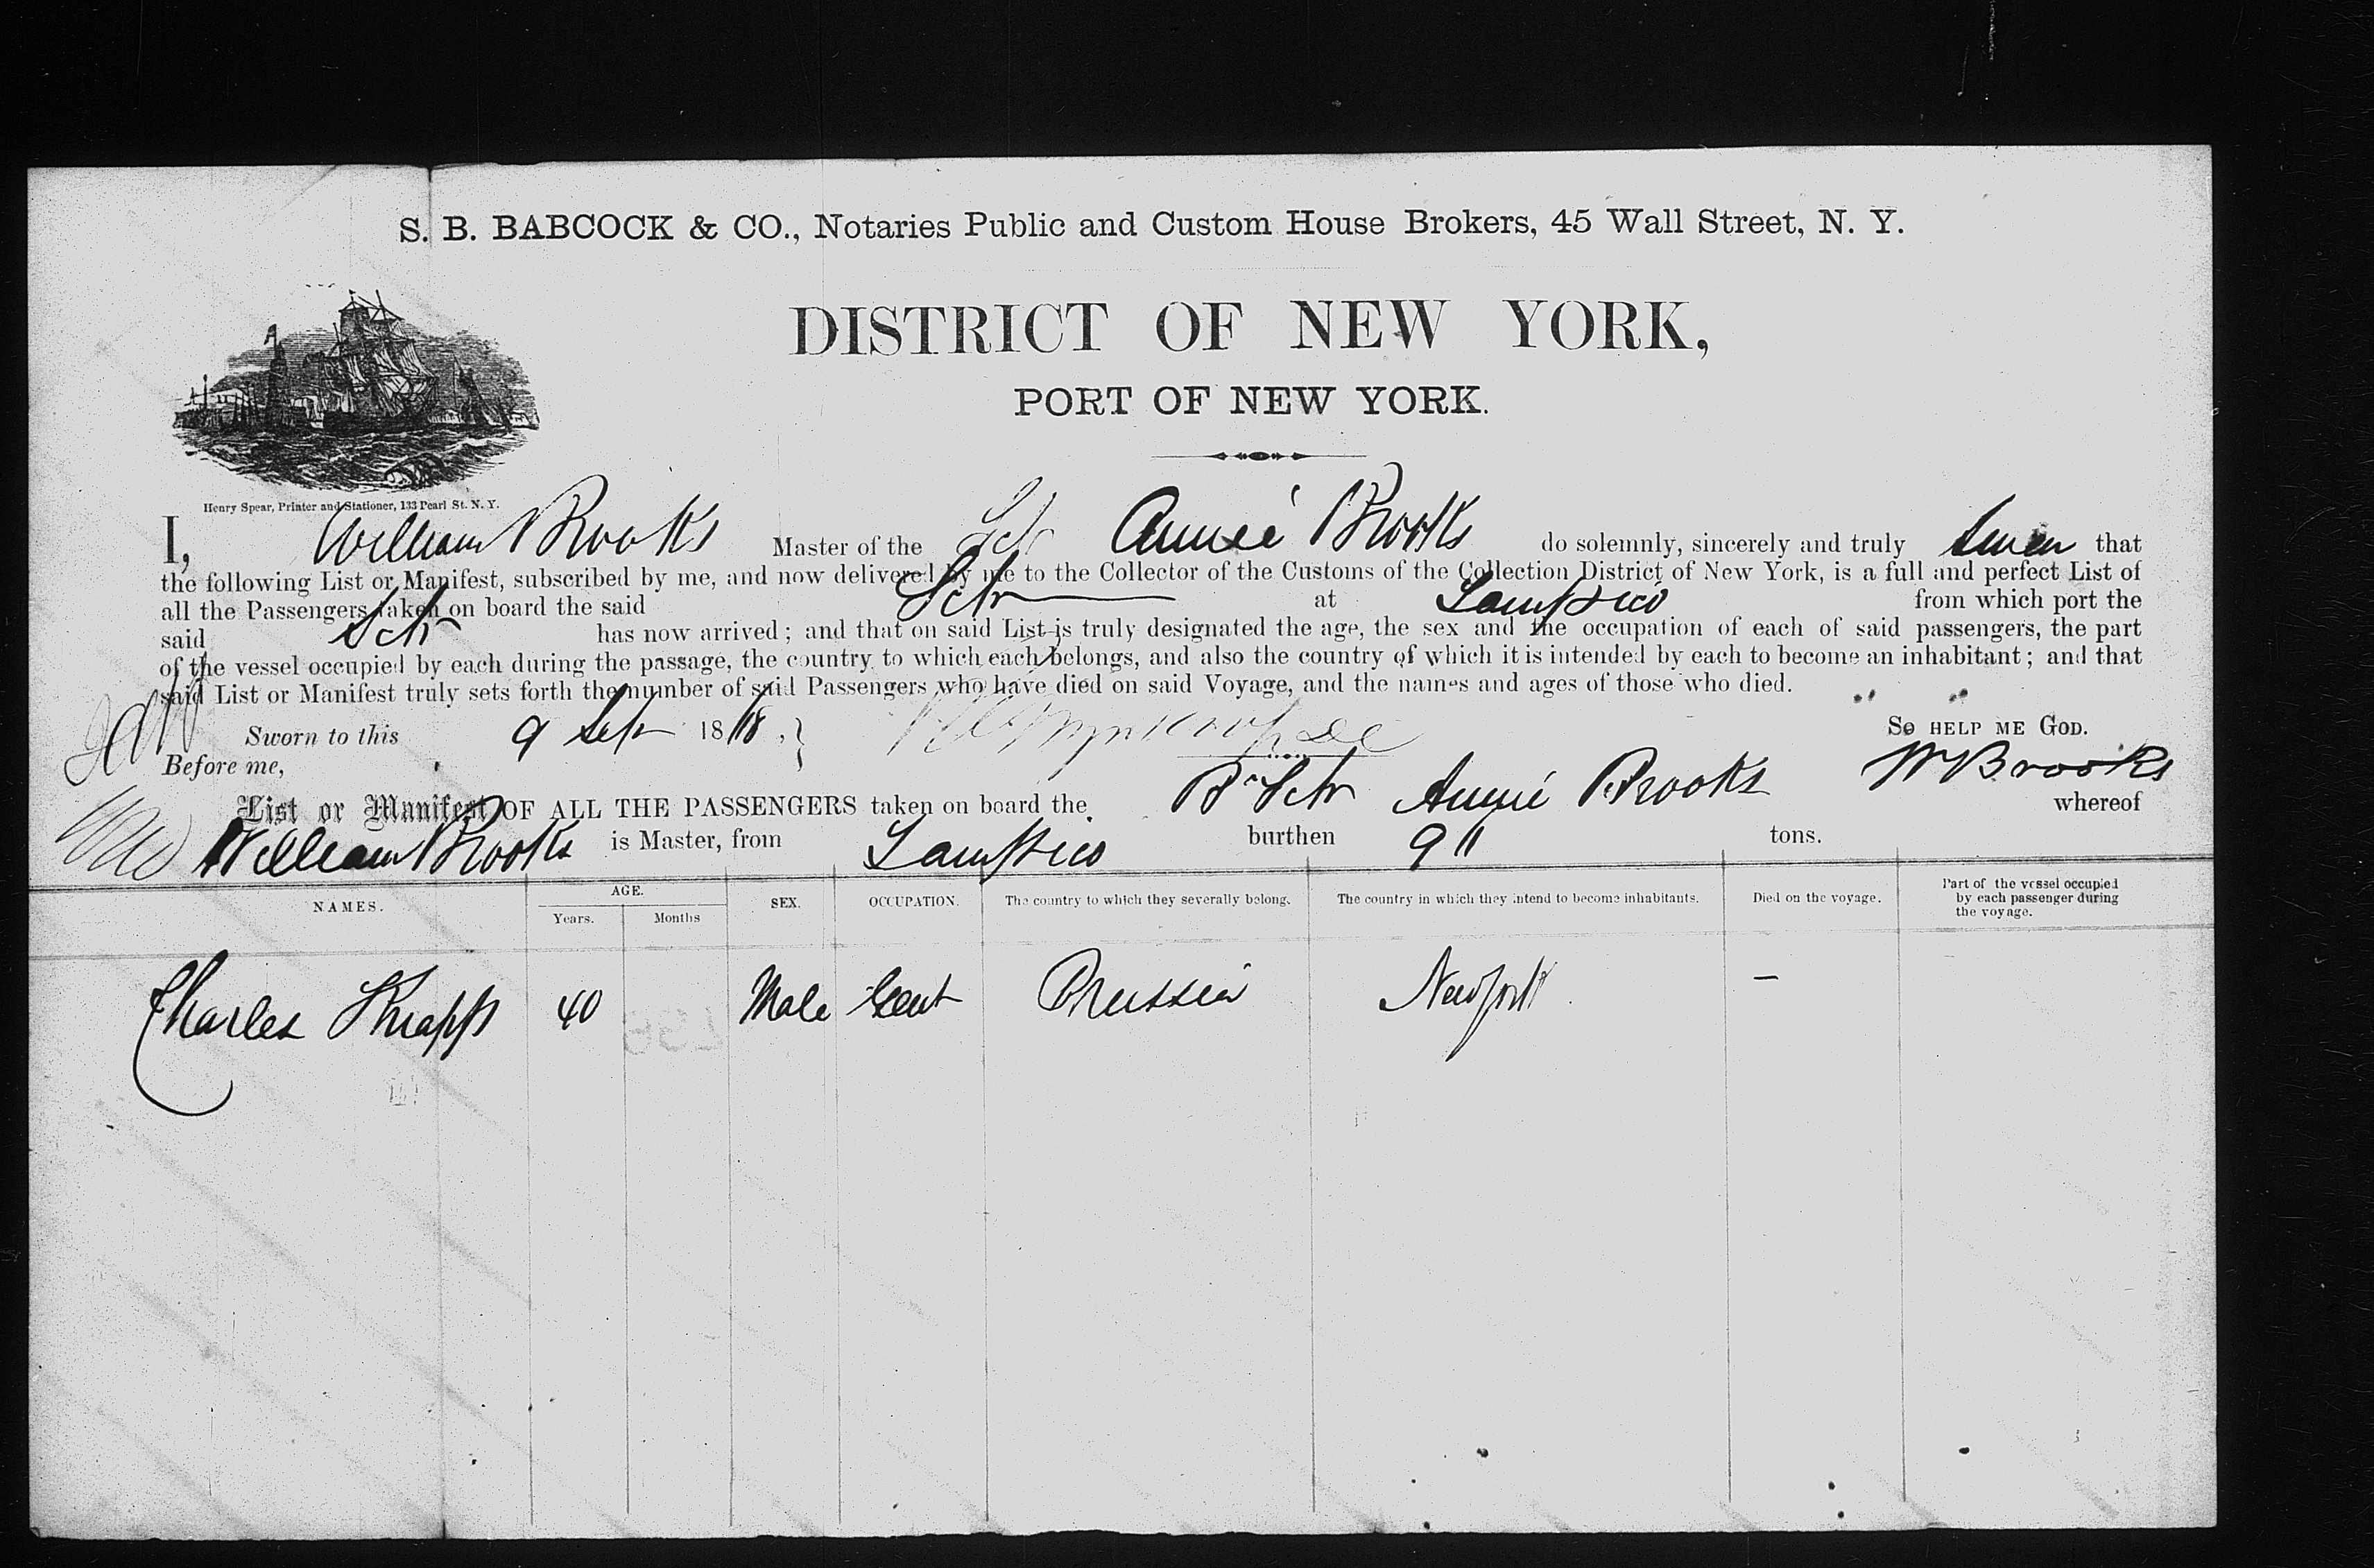 S. B. BABCOCK & CO., Notaries Public and Custom House Brokers, 45 Wall Street, N. Y.
DISTRICT OF NEW YORK,
PORT OF NEW YORK.
Henry Spear, Printer and Stationer, 133 Pearl St. N. Y.
I, William Brooks Master of the Schr Annie Brooks do solemnly, sincerely and truly swear that
the following List or Manifest, subscribed by me, and now delivered by me to the Collector of the Customs of the Collection District of New York, is a full and perfect List of
all the Passengers taken on board the said Schr at Tampico from which port the
said Schr has now arrived; and that on said List is truly designated the age, the sex and the occupation of each of said passengers, the part
of the vessel occupied by each during the passage, the country to which each belongs, and also the country of which it is intended by each to become an inhabitant; and that
said List or Manifest truly sets forth the number of said Passengers who have died on said Voyage, and the names and ages of those who died.
Sworn to this 9 Sept 18 So help me God.
Before me, W Brooks
List or Manifest OF ALL THE PASSENGERS taken on board the Br Schr Annie Brooks whereof
William Brooks is Master, from Tampico burthen 911 tons.
NAMES. AGE. Years. Months SEX. OCCUPATION. The country to which they severally belong. The country in which they intend to become inhabitants. Died on the voyage. Part of the vessel occupied by each passenger during the voyage.
Charles Knapp 40 Male Gent Prussia New York —